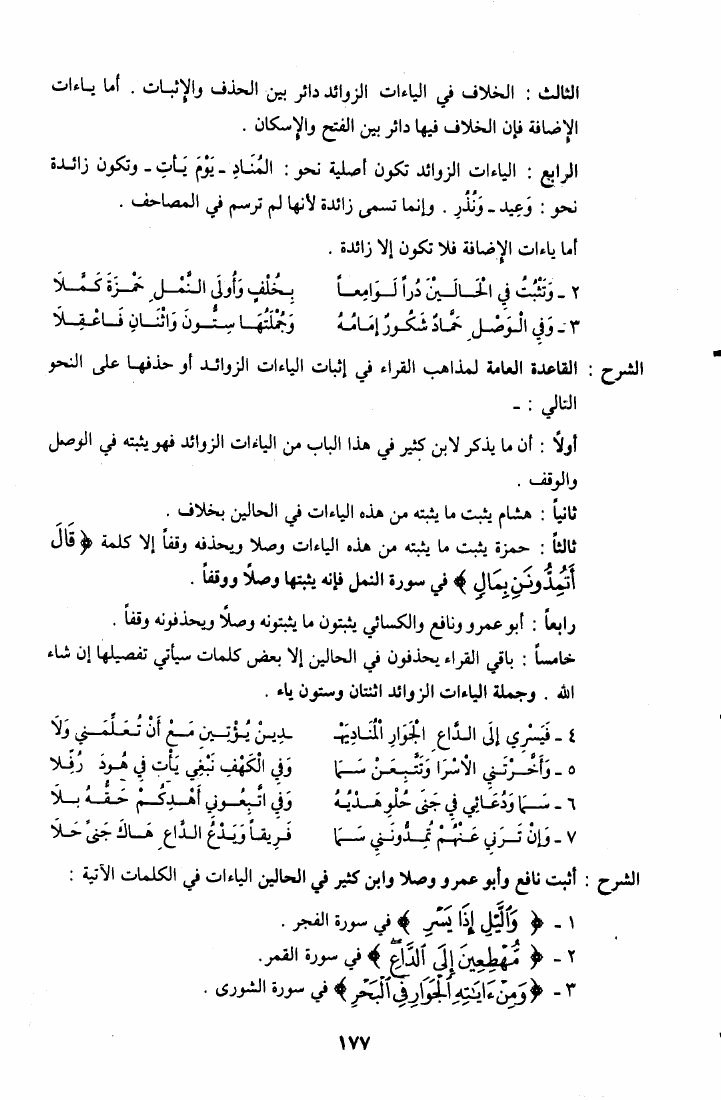 الثالث : الخلاف في الياءات الزوائد دائر بين الحذف والإثبات . أما ياءات
الإضافة فإن الخلاف فيها دائر بين الفتح والإسكان .
الرابع : الياءات الزوائد تكون أصلية نحو : المُنَادِ ـ يَوْمَ يَأتِ ـ وتكون زائدة
نحو : وَعِيدِ ـ وَنُذُرِ . وإنما تسمى زائدة لأنها لم ترسم في المصاحف .
أما ياءات الإضافة فلا تكون إلا زائدة .
٢ ـ وَتَثْبُتُ فِي الْحَالَيْنِ دُراً لَوَامِعاً بِخُلْفٍ وَأُولَى النَّمْلِ حَمْزَةُ كَمَّلَا
٣ ـ وَفِي الْوَصْلِ حَمَّادٌ شَكُورٌ إِمَامُهُ وَجُمْلَتُهَا سِتُّونَ وَاثْنَانِ فَاعْقِلَا
الشرح : القاعدة العامة لمذاهب القراء في إثبات الياءات الزوائد أو حذفها على النحو
التالي : ـ
أولاً : أن ما يذكر لابن كثير في هذا الباب من الياءات الزوائد فهو يثبته في الوصل
والوقف .
ثانياً : هشام يثبت ما يثبته من هذه الياءات في الحالين بخلاف .
ثالثاً : حمزة يثبت ما يثبته من هذه الياءات وصلا ويحذفه وقفاً إلا كلمة ﴿ قَالَ
أَتُمِدُّونَنِ بِمَالٍ ﴾ في سورة النمل فإنه يثبتها وصلاً ووقفاً .
رابعاً : أبو عمرو ونافع والكسائي يثبتون ما يثبتونه وصلاً ويحذفونه وقفاً .
خامساً : باقي القراء يحذفون في الحالين إلا بعض كلمات سيأتي تفصيلها إن شاء
الله . وجملة الياءات الزوائد اثنتان وستون ياء .
٤ ـ فَيَسْرِي إِلَى الدَّاعِ الْجَوَارِ الْمُنَادِيَهْ دِينْ يُؤْتِينْ مَعْ أَنْ تُعَلِّمَنِي وَلَا
٥ ـ وَأَخَّرْتَنِي الْأسْرَا وَتَتَّبِعَنْ سَمَا وَفِي الْكَهْفِ نَبْغِي يَأْتِ فِي هُودَ رُفِّلَا
٦ ـ سَمَا وَدُعَائِي فِي جَنَى حُلْوِ هَدْيُهُ وَفِي اتَّبِعُونِي أَهْدِكُمْ حَقُّهُ بَلَا
٧ ـ وَإِنْ تَرَنِي عَنْهُمْ تُمِدُّونَنِي سَمَا فَرِيقاً وَيَدْعُ الدَّاعِ هَاكَ جَنىً حَلَا
الشرح : أثبت نافع وأبو عمرو وصلا وابن كثير في الحالين الياءات في الكلمات الآتية :
١ ـ ﴿ وَٱلَّيْلِ إِذَا يَسْرِ ﴾ في سورة الفجر .
٢ ـ ﴿ مُّهْطِعِينَ إِلَى ٱلدَّاعِ ﴾ في سورة القمر.
٣ ـ ﴿ وَمِنْ ءَايَٰتِهِ ٱلْجَوَارِ فِى ٱلْبَحْرِ ﴾ في سورة الشورى .
١٧٧